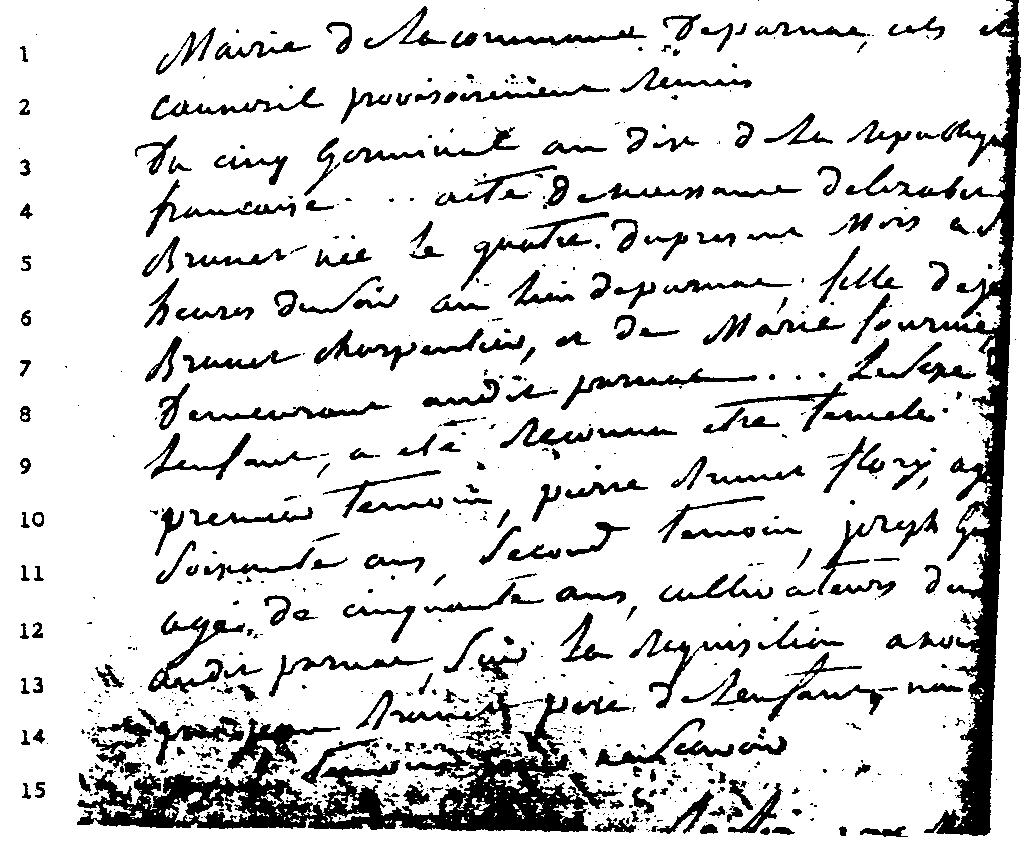 1 Mairie de la commune deparnac, cels et
2 caunoril provisoirement Reunis
3 Du cinq Germinal an dix de la republique
4 francaise . . . acte de naissance delizabet
5 Brunet née le quatre dupresent mois a
6 heures du soir au lieu deparnac, fille deje
7 Brunet charpentier, et de Marie fournié,
8 Demeurant audit parnac . . . Le sexe
9 Lenfant, a eté Reconnu etre femele
10 premier temoin, pierre Brunet flory, agé
11 soixante ans, second temoin, joseph
12 agé de cinquante ans, cultivateurs
13 audit parnac, sur la Requisition a nous
14 par jean Brunet pere de Lenfant,
15 ne scavoir